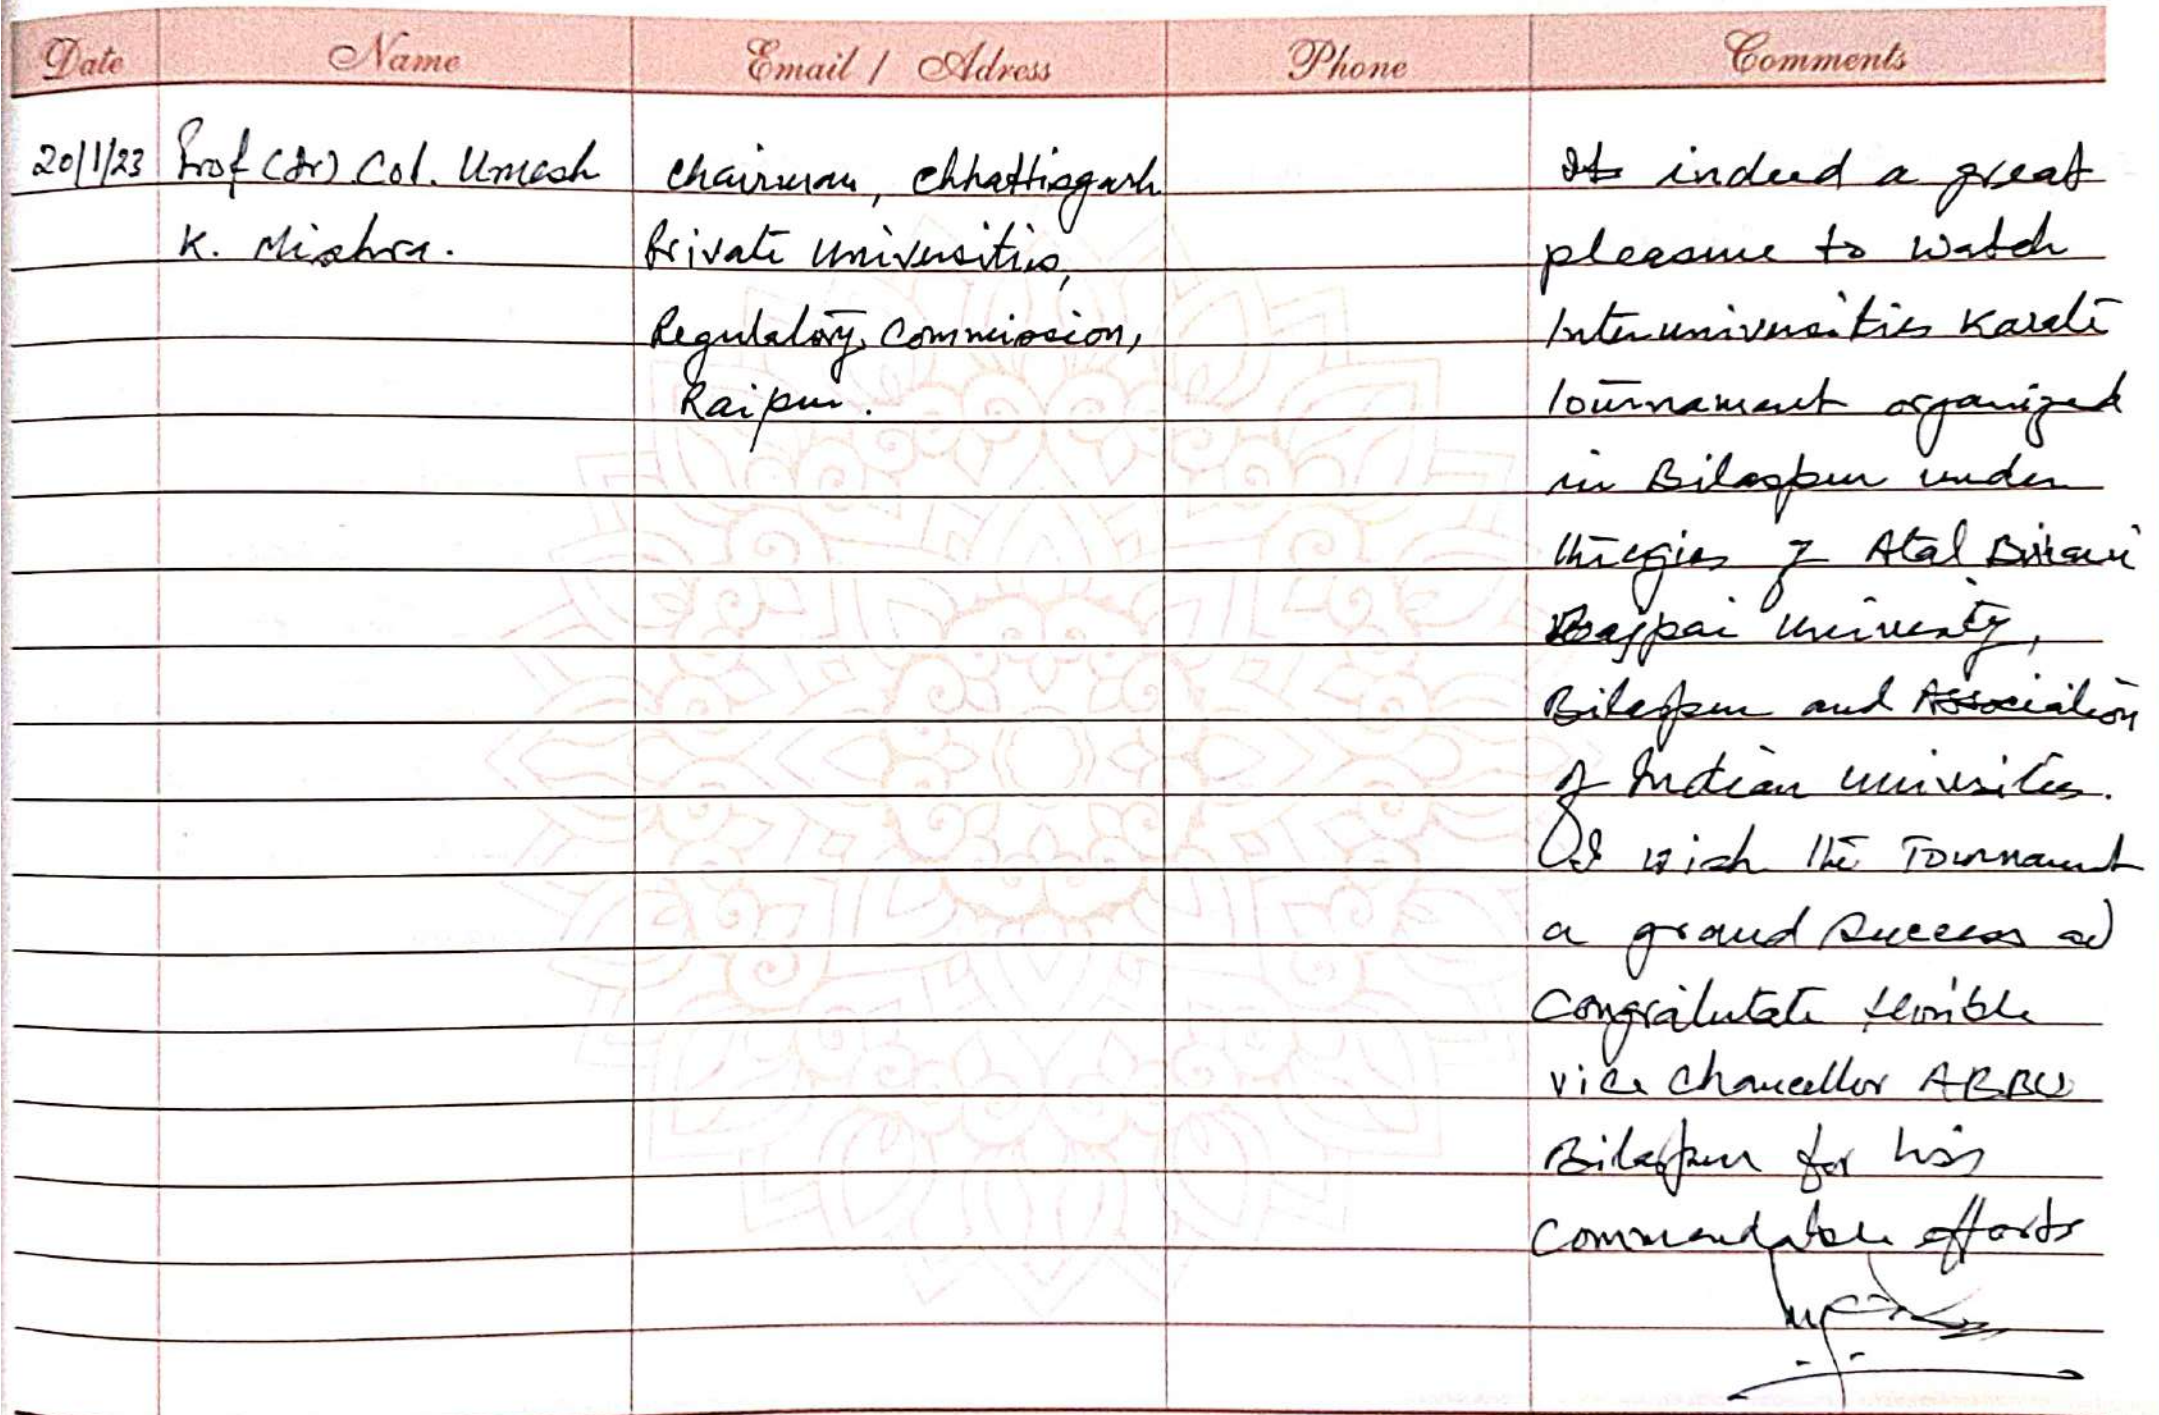 Date Name Email / Adress Phone Comments
20/1/23 Prof (Dr) Col. Umesh
K. Mishra.
Chairman, Chhattisgarh
Private Universities,
Regulatory Commission,
Raipur.
It indeed a great
pleasure to watch
Inter universities Karate
Tournament organized
in Bilaspur under
of Atal Bihari
Bajpai University,
Bilaspur and Association
of Indian Universities.
I wish the Tournament
a grand success and
Congratulate Hon'ble
Vice Chancellor ABBU
Bilaspur for his
Commendable efforts